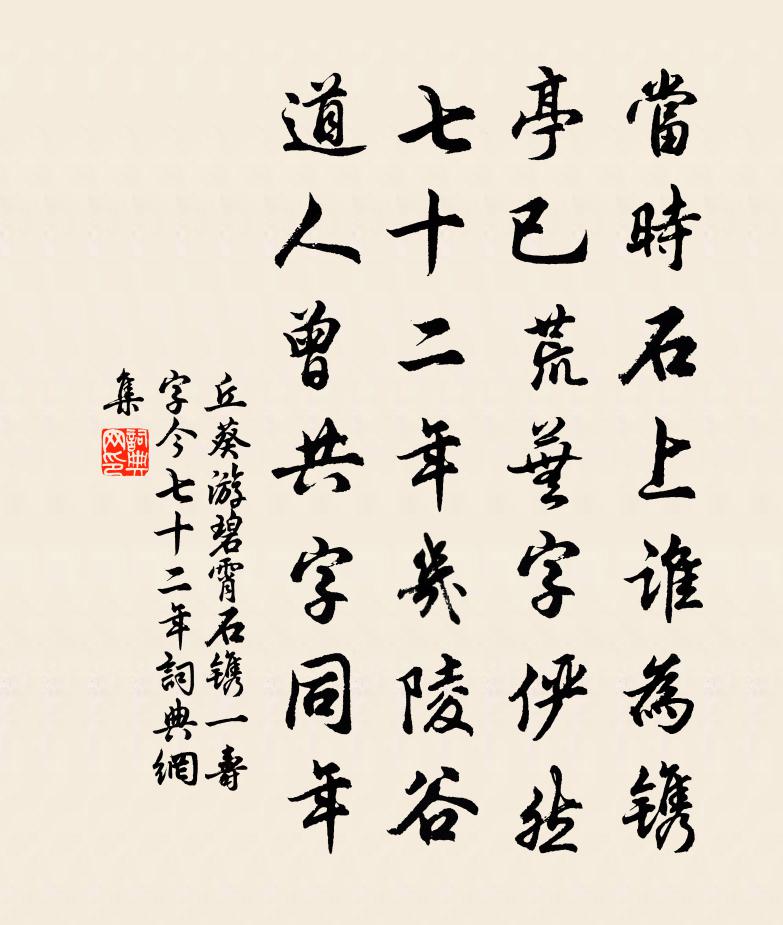 當時石上誰為鐫
亭已荒蕪字儼然
七十二年幾陵谷
道人曾共字同年
丘葵游碧霄石鐫一壽
字今七十二年詞典網
集
詞典
网印